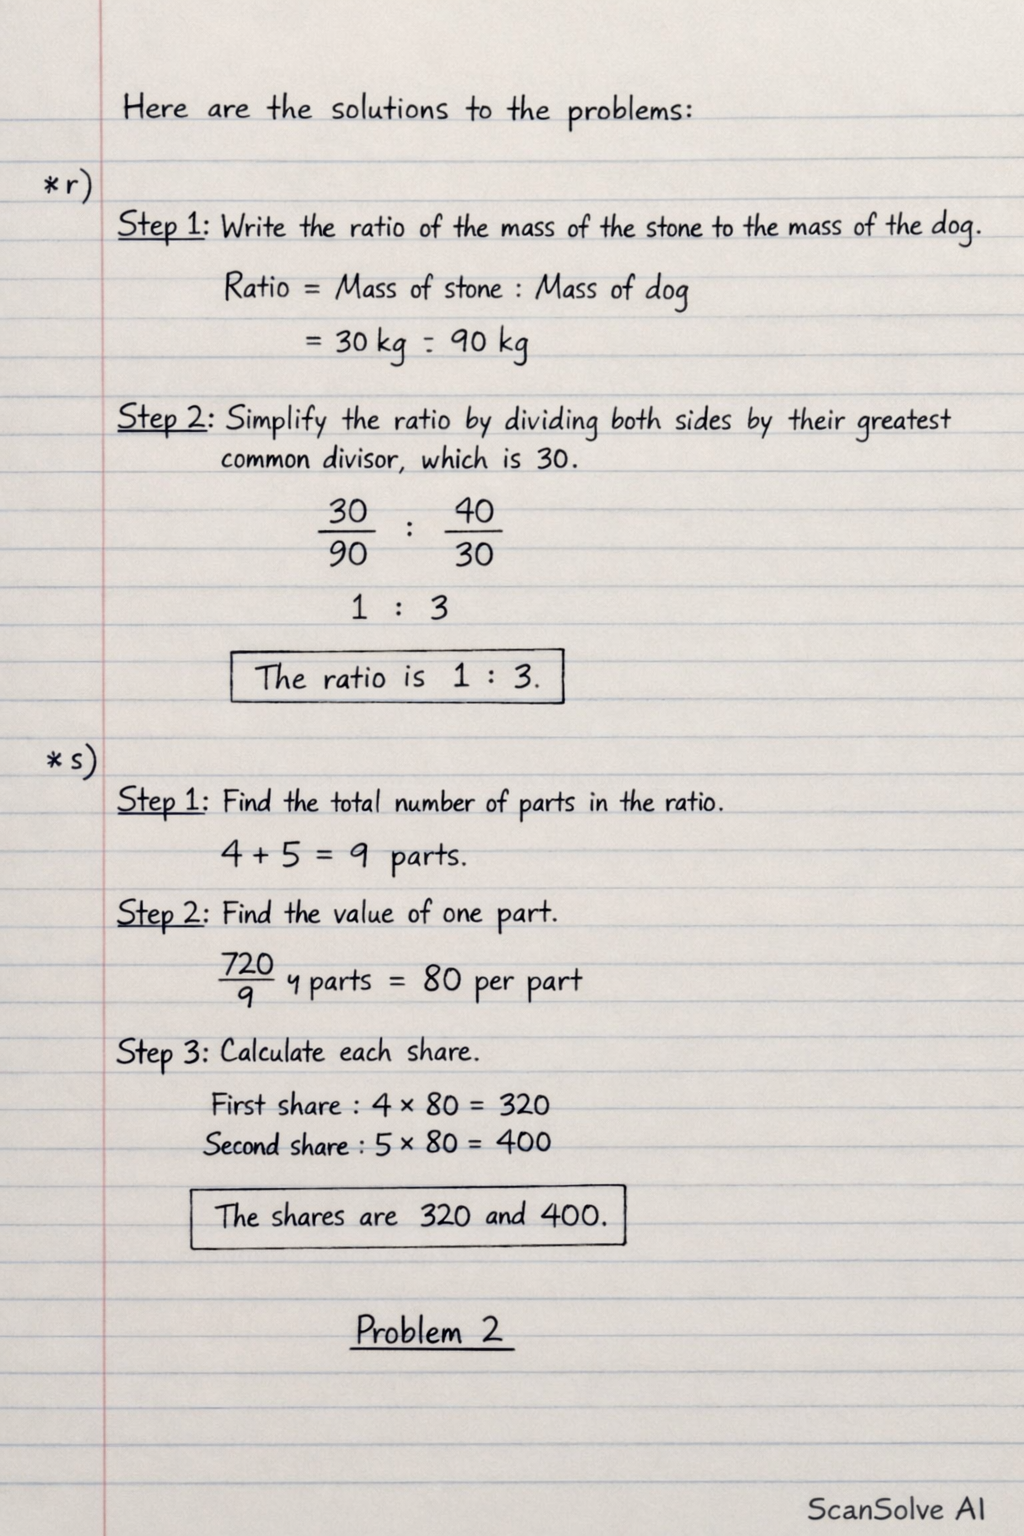 Here are the solutions to the problems:
*r)
Step 1: Write the ratio of the mass of the stone to the mass of the dog.
Ratio = Mass of stone : Mass of dog
= 30 kg ÷ 90 kg
Step 2: Simplify the ratio by dividing both sides by their greatest
common divisor, which is 30.
30/90 : 40/30
1 : 3
The ratio is 1 : 3.
*s)
Step 1: Find the total number of parts in the ratio.
4 + 5 = 9 parts.
Step 2: Find the value of one part.
720/9 y parts = 80 per part
Step 3: Calculate each share.
First share : 4 × 80 = 320
Second share : 5 × 80 = 400
The shares are 320 and 400.
Problem 2
ScanSolve AI